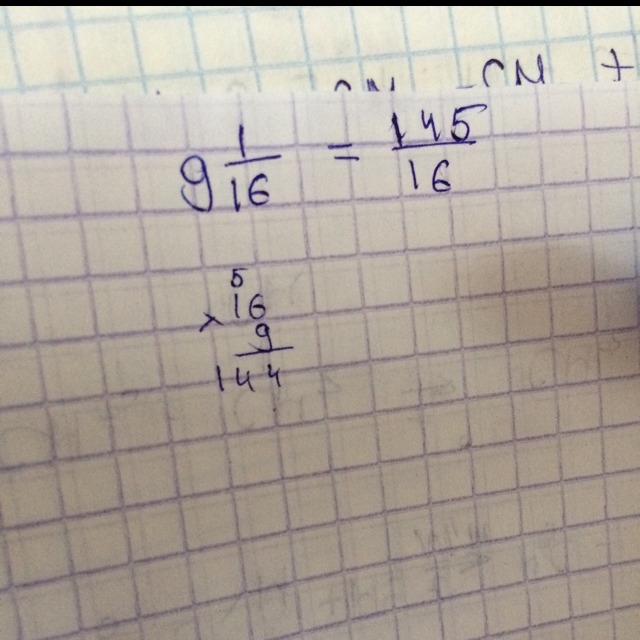 CN +
9 1/16 = 145/16
5
16
× 9
144